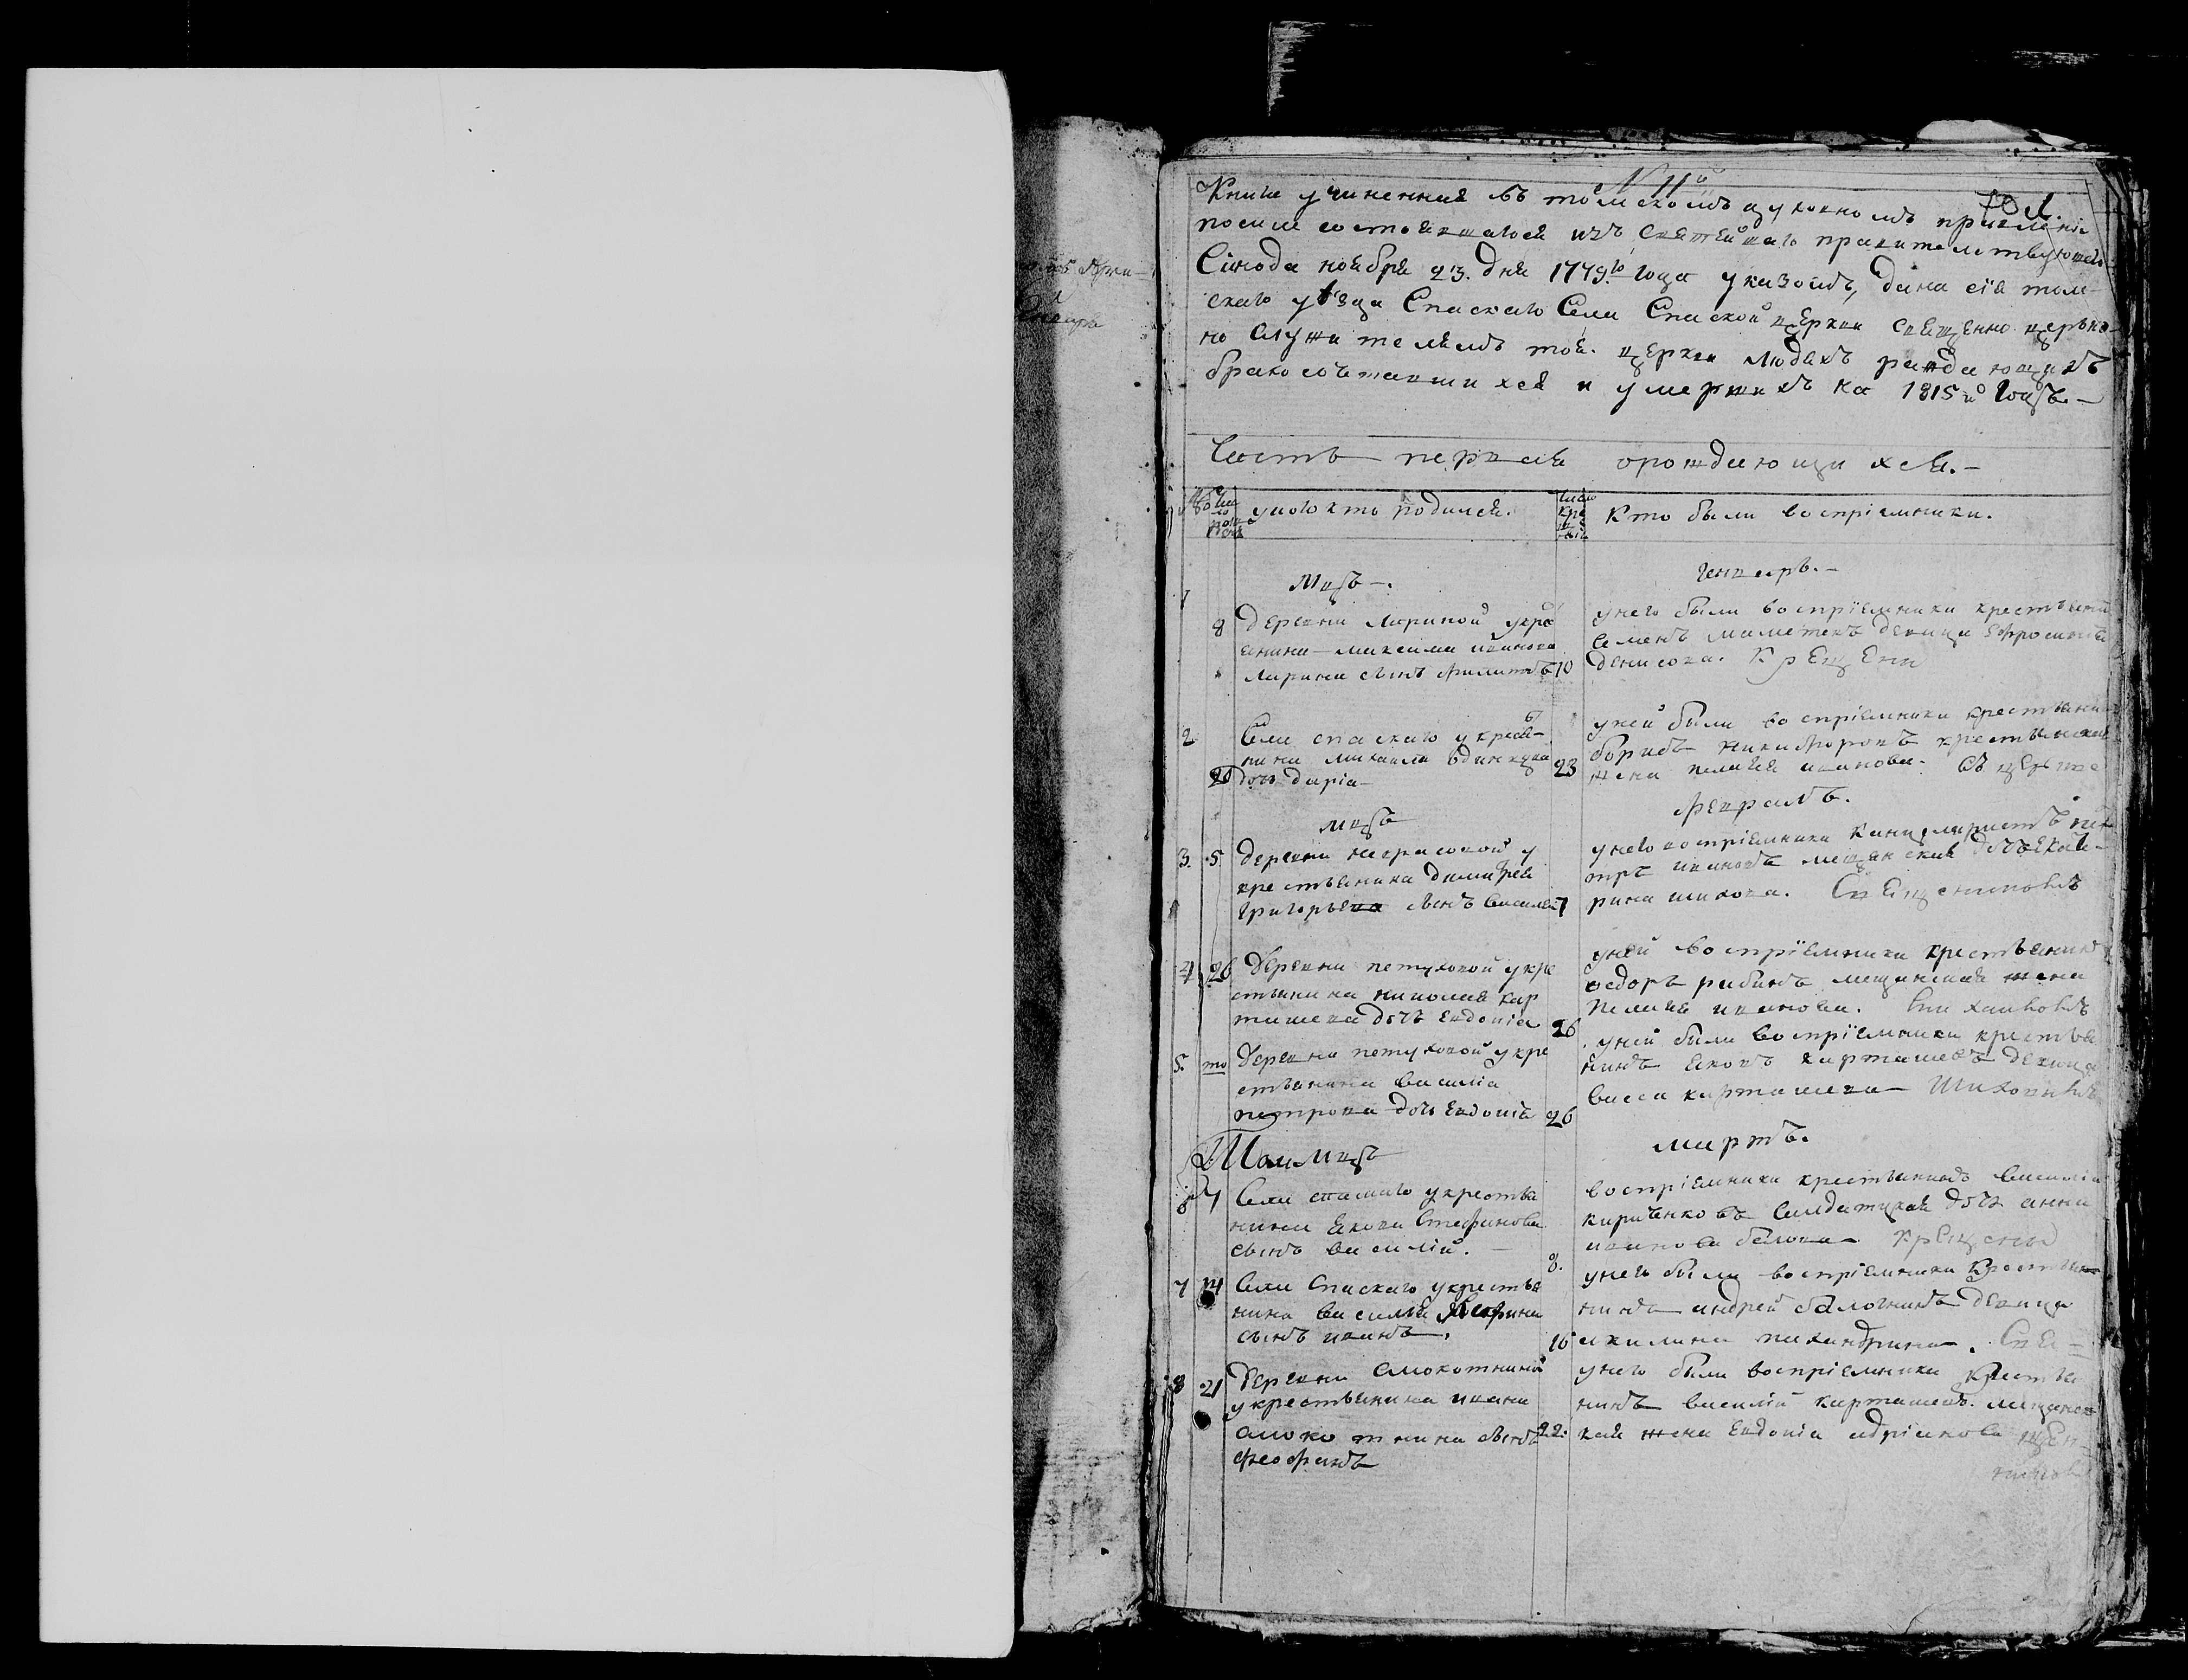 № 11й
Книга учиненная въ томскомъ духовномъ правленіи
посиле состоявшагося изъ Святейшаго правителствующаго
Сѵнода ноября 23. дня 1779го года указомъ, дана сія том-
скаго уѣзда Спаскаго Села Спаской церкви священно церко-
но служителямъ той. церкви людехъ раждающихъ
бракосочетавшихся и умершихъ на 1815й годъ.-
Часть первая орождающихся.-
укого кто родился.
Кто были воспріемники.
Мцъ-.
генварь.-
8 деревни лариной укре
янина максима иванова
ларина сынъ филипъ 10
унего были воспріемники крестьянинъ
Семенъ маметевъ девица Ефросинья
денисова. Крещены
2 Села спаскаго укрестья-
нина михаила одинцова
20 дочь дарія- 23
уней были воспріемники крестьянинъ
борисъ никифоровъ крестьянская
жена пелагея иванова.
мцъ
февраль.
3. 5. деревни некрасовой у
крестьянина димитрея
григорьева сынъ василей 7
унего воспріемники канцеляристъ пе-
тръ ивановъ мещанская дочь екате-
рина шихова. Священниковъ
4 26 Деревни петуховой укре
стьянина николая кар
ташева дочь Евдокіа 26
уней воспріемники крестьянинъ
ѳедоръ рыбинъ мещанская жена
пелагея иванова.
5. то Деревни петуховой укре
стьянина василіа
петрова дочь Евдокіа 26
уней были воспріемники крестья
нинъ яковъ карташевъ девица
васса карташева-
мцъ
мартъ.
6 7 Села спаскаго укрестья
нина якова Стефанова
сынъ василій.- 8.
воспріемники крестьянинъ василій
кириенковъ Салдатская дочь анна
иванова белова- Крещены
7 14 Села Спаскаго укрестья
нина василья
сынъ иванъ. 16
унего были воспріемники Крестья
нинъ андрей болотнинъ девица
акилина
8 21 деревни Смокотниной
укрестьянина ивана
смокотнина сынъ 22.
феофанъ
унего были воспріемники крестья
нинъ василій карташевъ. мещанс
кая жена Евдокіа адріанова